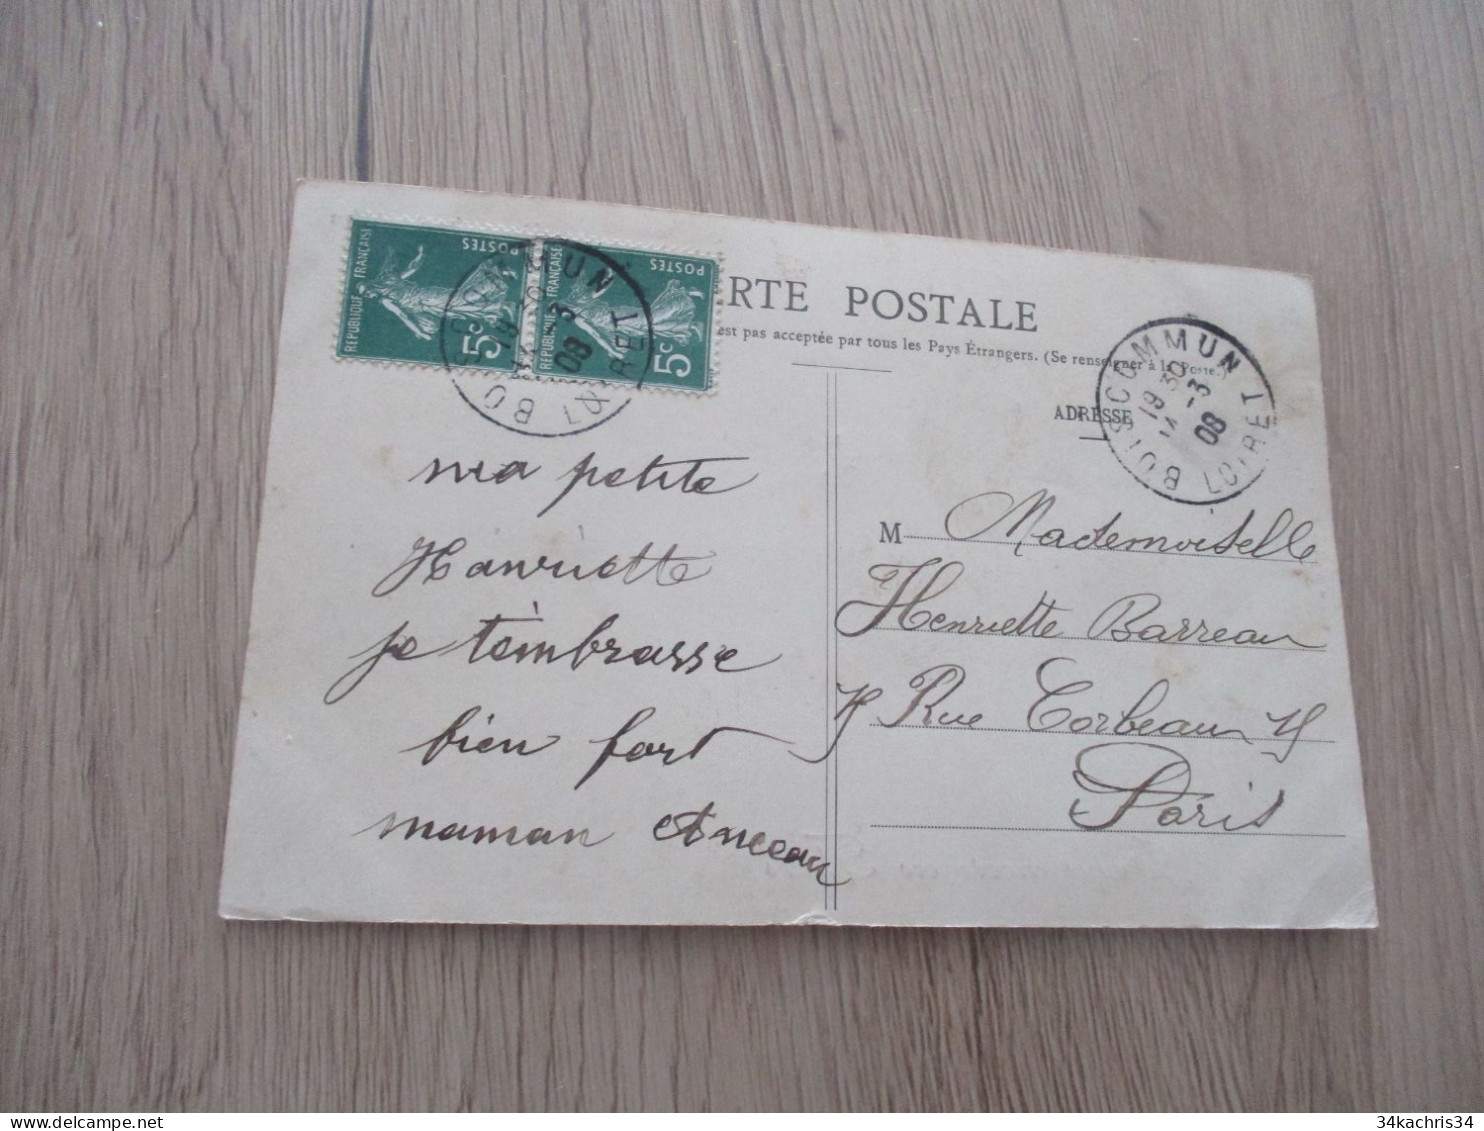 RÉPUBLIQUE FRANÇAISE
POSTES
5c
RÉPUBLIQUE FRANÇAISE
POSTES
5c
BOISCOMMUN
19 30
14 -3
08
LOIRET
RTE POSTALE
est pas acceptée par tous les Pays Étrangers. (Se renseigner à la Poste.)
ADRESSE
BOISCOMMUN
19 30
14 -3
08
LOIRET
ma petite
Hanriette
je t'embrasse
bien fort
maman
M Mademoiselle
Henriette Barreau
Rue Corbeau
Paris
34kachris34
34kachris34